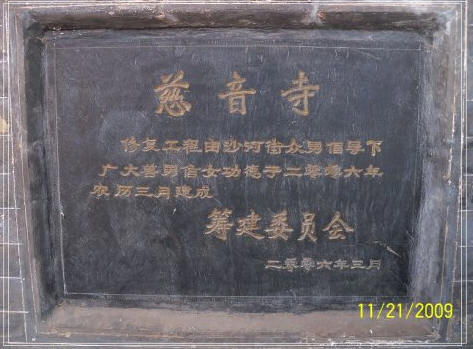 慈音寺
修复工程由沙河街众男倡导下
广大善男信女功德于二零零六年
农历三月建成
筹建委员会
二零零六年三月
11/21/2009